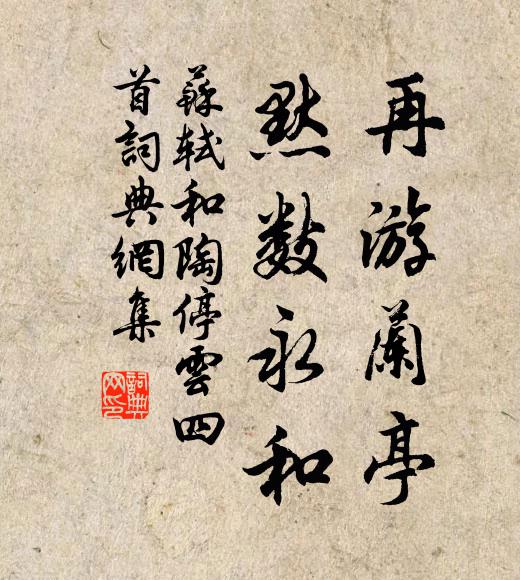 再游蘭亭
默數永和
蘇軾和陶停雲四
首詞典網集
詞典
网印